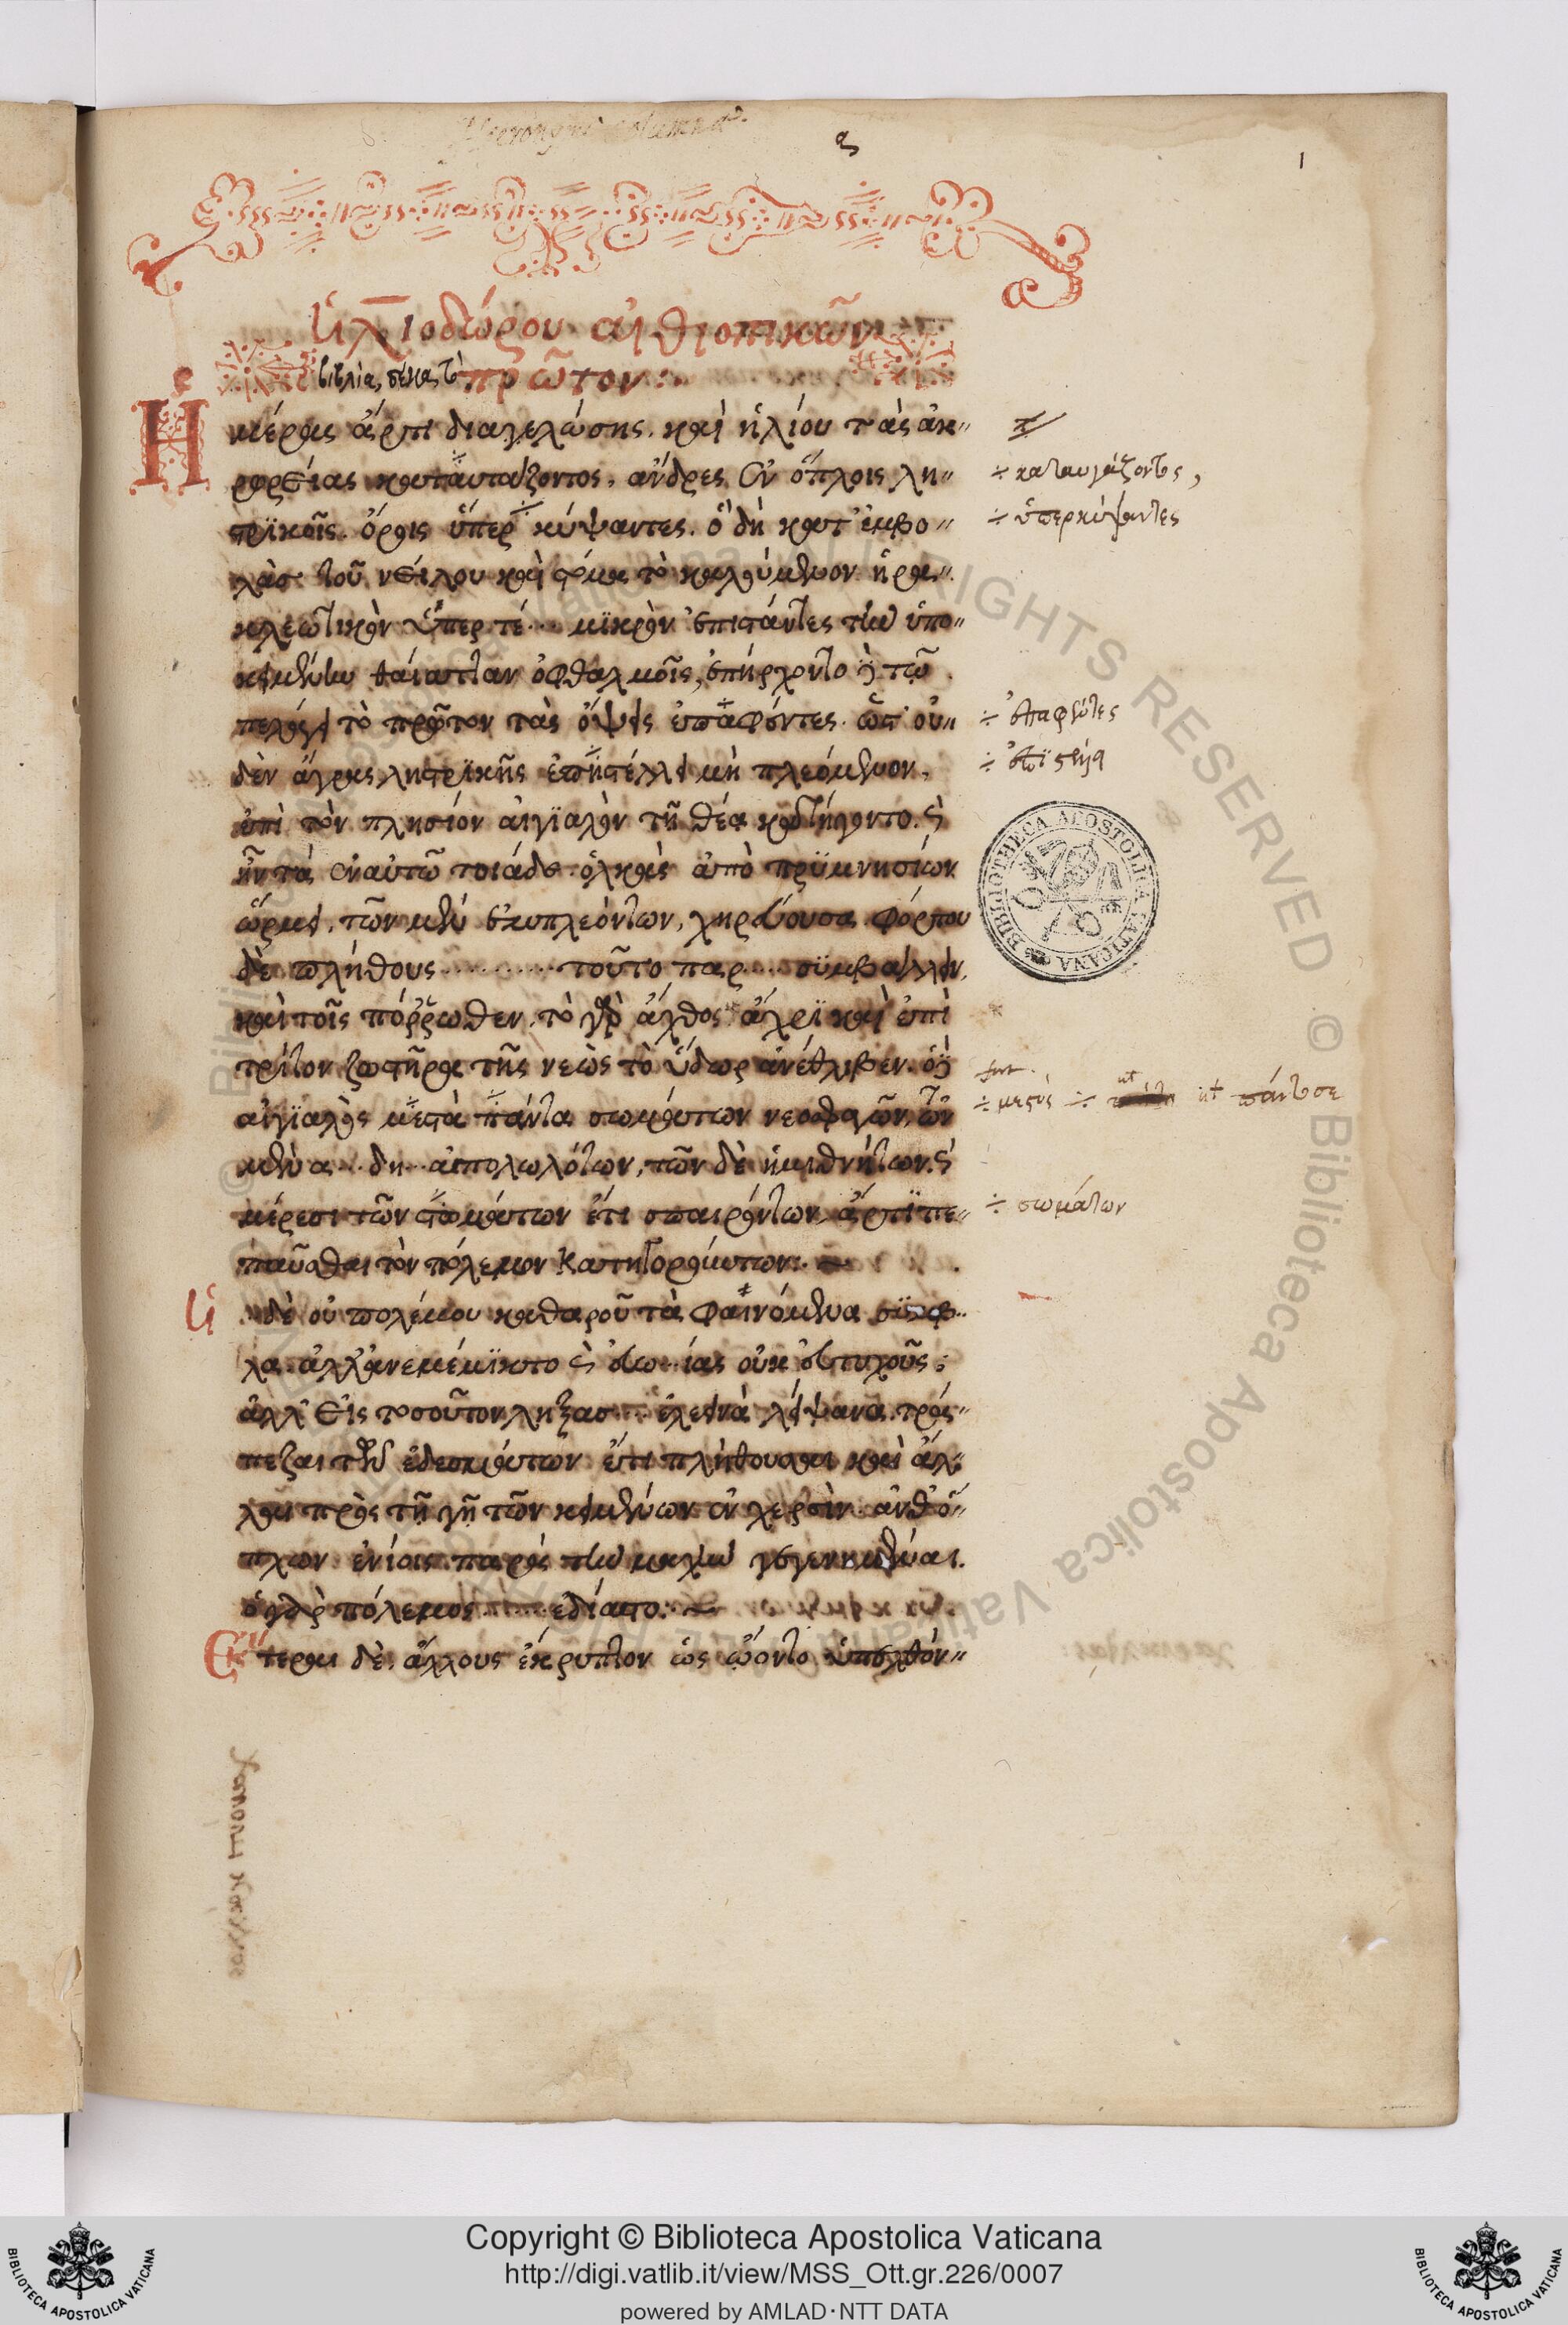 1
ἡλιοδώρου αἰθιοπικῶν
βιβλία δέκα τὸ πρῶτον:
Ἡμέρας ἄρτι διαγελώσης. καὶ ἡλίου τὰς ἀκ-
ρωρείας καταυγάζοντος, ἄνδρες ἐν ὅπλοις λη-
÷ καταυγάζοντος,
στρϊκοῖς. ὄρους ὑπερκύψαντες. ὃ δὴ κατ' ἐμβο-
÷ ὑπερκύψαντες
λὰς τοῦ νείλου καὶ στόμα τὸ καλούμενον ἡρα-
κλεωτικὸν ὑπερτέ... μϊκρὸν ἐπιστάντες τὴν ὑπο-
κειμένην θάλατταν ὀφθαλμοῖς, ἐπήρχοντο καὶ τῷ
πελάγει τὸ πρῶτον τὰς ὄψεις ἐπαφέντες. ὡς οὐ-
÷ ἐπαφέντες
δὲν ἄγρας ληστρϊκῆς ἐπηστέλλει μὴ πλεόμενον,
ἐπὶ τὸν πλησίον αἰγϊαλὸν τῇ θέᾳ κατήγοντο. καὶ
ἦν τὰ ἐν αὐτῷ τοιάδε. ὁλκὰς ἀπὸ πρϋμνησίων
ὥρμει. τῶν μὲν ἐμπλεόντων, χηρεύουσα. φόρτου
δὲ πλήθους ....... τοῦτο παρ.... σϋμβάλλειν,
καὶ τοῖς πόρρωθεν. τὸ γὰρ ἄχθος ἄχρϊ καὶ ἐπὶ
τρίτον ζωστῆρα τῆς νεὼς τὸ ὕδωρ ἀνέθλιβεν. ὁ δὲ
αἰγϊαλὸς μεστὰ πάντα σωμάτων νεοσφαγῶν, τῶν
÷ μεστὸς ÷ ut πάντοσε
μὲν α.. δη.. ἀπολωλότων, τῶν δὲ ἡμιθνήτων. καὶ
μέρεσι τῶν στομάτων ἔτι σπαιρόντων, ἄρτϊ πε-
÷ σωμάτων
παῦσθαι τὸν πόλεμον κατηγορούντων.
ἦ. δὲ οὐ πολέμου καθαροῦ τὰ φαινόμενα σϋμβ..
λα. ἀλλ' ἀνεμέμϊκτο καὶ εὐω..ίας οὐκ εὐτυχοῦς:
ἀλλ' εἰς τοσοῦτον ληξας... ἐλεεινὰ λείψανα. τρά-
πεζαι τῶν ἐδεσμάτων ἔτι πλήθουσαι καὶ ἄλ-
λαι πρὸς τῇ γῇ τῶν κειμένων ἐν χερσὶν. ἀνθ' ὅ-
πλων ἐνίοις παρὰ τὴν μάχην γεγενημέναι.
ὁ γὰρ πόλεμος ... ἐδίατο.
Ἕτεραι δὲ, ἄλλους ἔκρυπτον ὡς ᾤοντο ὑπελθόν-
BIBLIOTHECA APOSTOLICA VATICANA
Copyright © Biblioteca Apostolica Vaticana
http://digi.vatlib.it/view/MSS_Ott.gr.226/0007
powered by AMLAD·NTT DATA
BIBLIOTECA APOSTOLICA VATICANA
BIBLIOTECA APOSTOLICA VATICANA